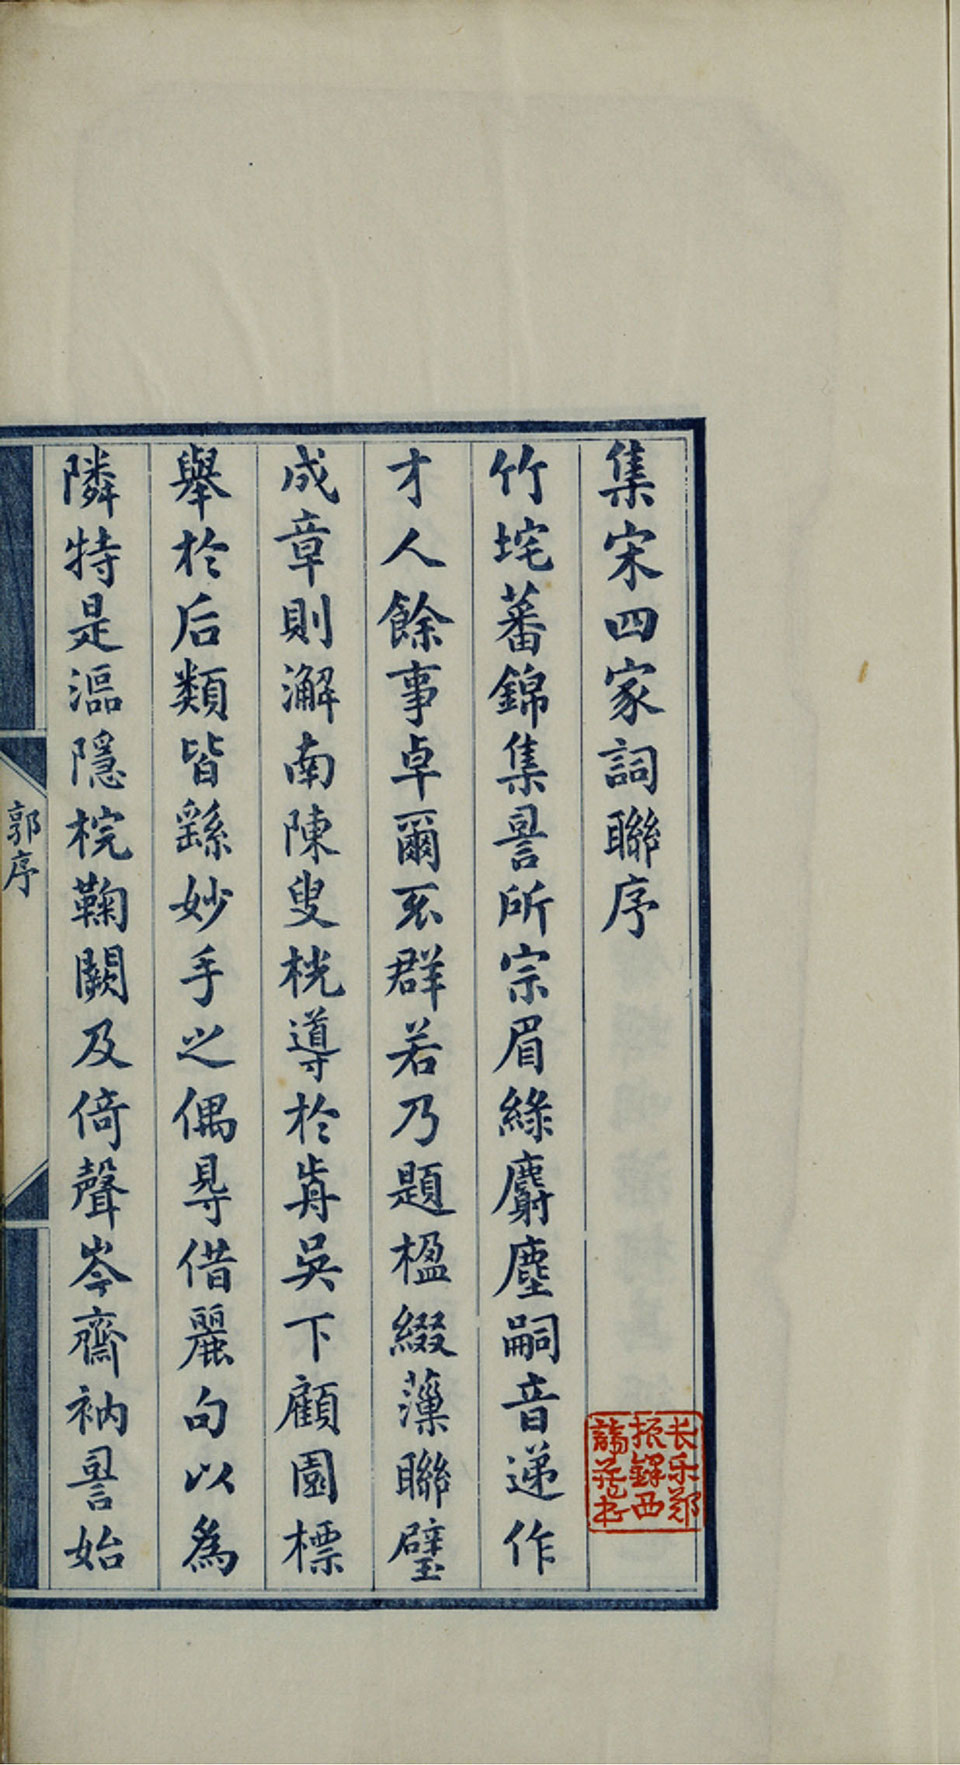 集宋四家詞聯序
竹垞蕃錦集詞所宗眉綠麝塵嗣音递作
才人餘事卓爾不群若乃題楹綴藻聯璧
成章則澥南陳叟桄導於歬吳下顧園標
舉於后類皆繇妙手之偶㝵借麗句以為
隣特是漚隱梡鞠闕及倚聲岑齋衲詞始
郭序
长乐郑
振鐸西
諦藏书